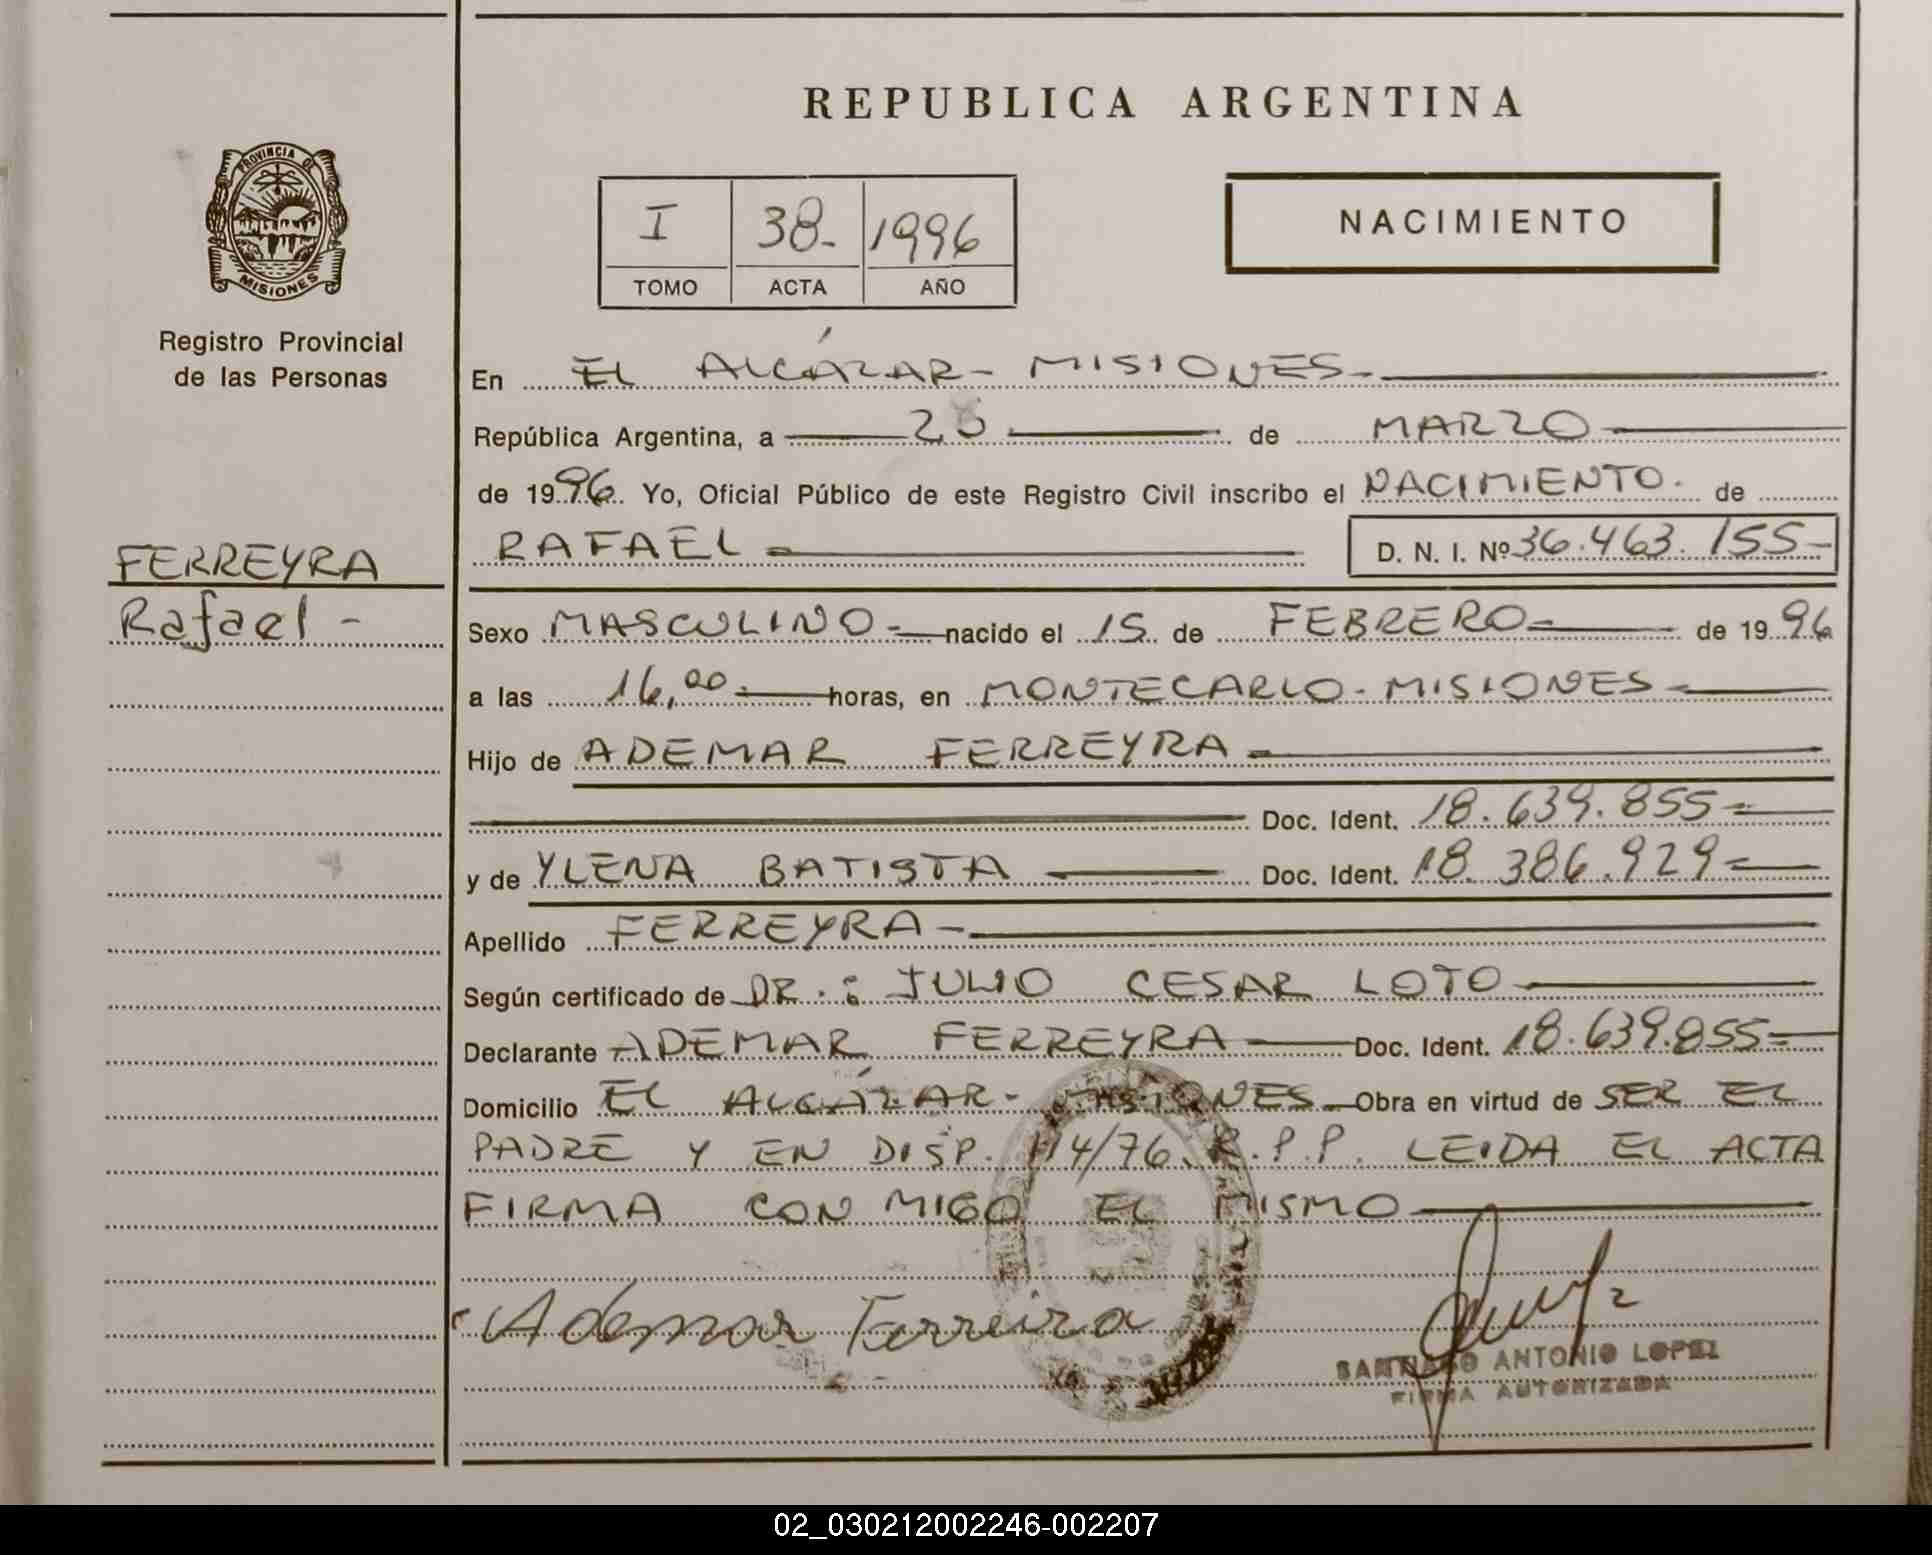 REPUBLICA ARGENTINA
PROVINCIA DE
MISIONES
Registro Provincial
de las Personas
I 38- 1996
TOMO ACTA AÑO
NACIMIENTO
En EL ALCÁZAR - MISIONES-
República Argentina, a de MARZO
de 1996. Yo, Oficial Público de este Registro Civil inscribo el NACIMIENTO. de
RAFAEL D. N. I. Nº 36.463.155-
FERREYRA
Rafael -
Sexo MASCULINO- nacido el 15 de FEBRERO- de 1996
a las 16,00- horas, en MONTECARLO - MISIONES-
Hijo de ADEMAR FERREYRA-
Doc. Ident. 18.639.855=
y de YLENA BATISTA Doc. Ident. 18.386.929=
Apellido FERREYRA-
Según certificado de DR.: JULIO CESAR LOTO
Declarante ADEMAR FERREYRA Doc. Ident. 18.639.855=
Domicilio EL ALCÁZAR - MISIONES Obra en virtud de SER EL
PADRE Y EN DISP. 114/76. R.P.P. LEIDA EL ACTA
FIRMA CON MIGO EL MISMO
Ademar Ferreira
SANTIAGO ANTONIO LOPEZ
FIRMA AUTORIZADA
02_030212002246-002207